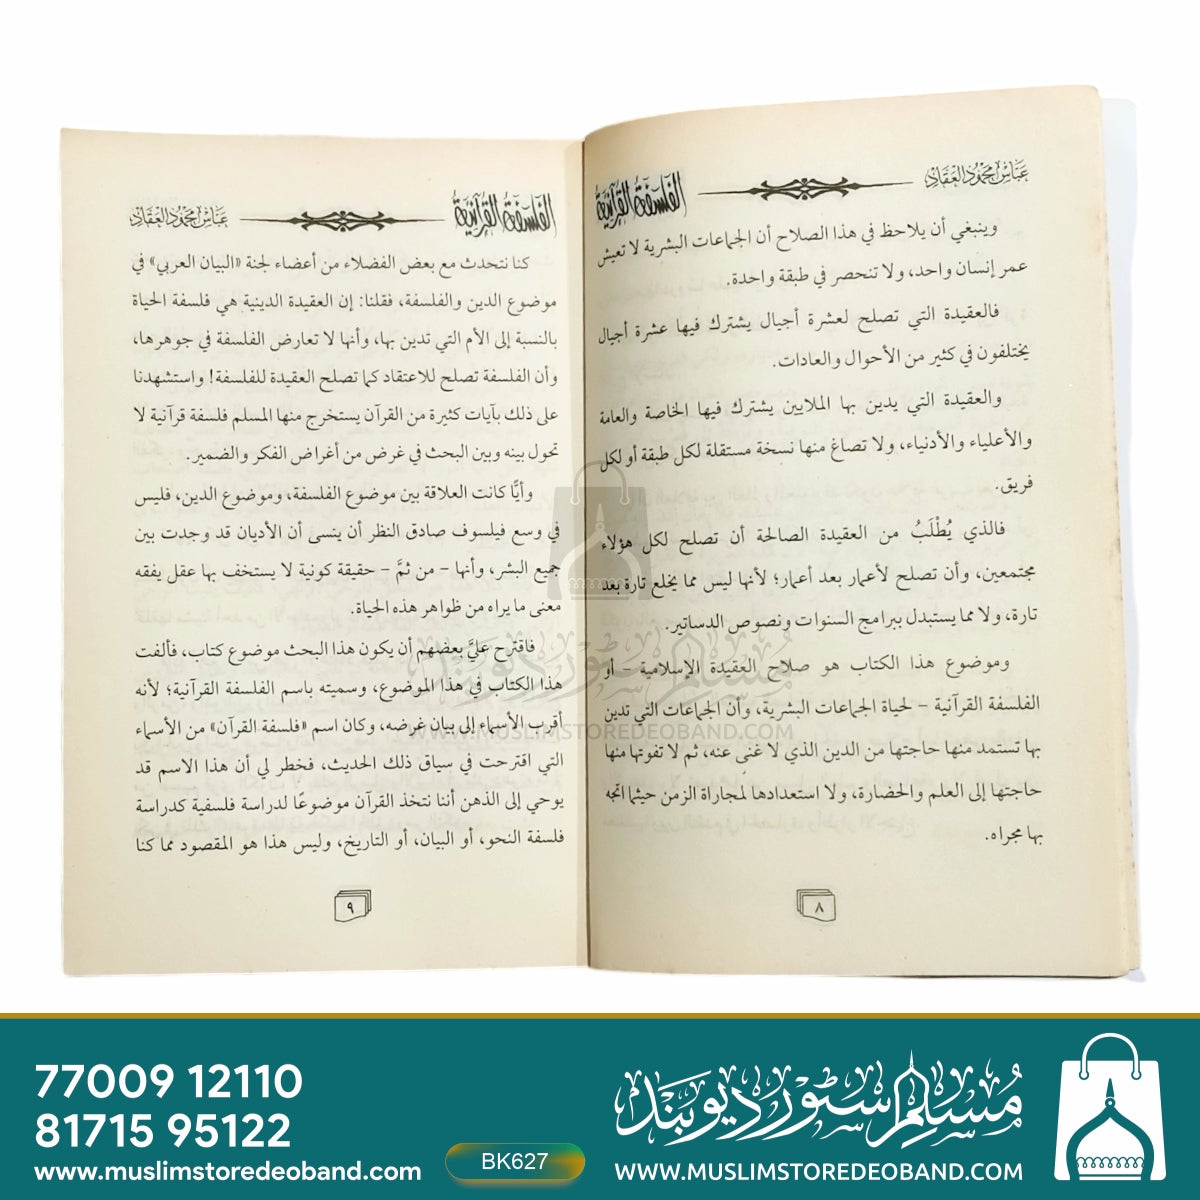 عباس محمود العقاد
الفلسفة القرآنية
وينبغي أن يلاحظ في هذا الصلاح أن الجماعات البشرية لا تعيش
عمر إنسان واحد، ولا تنحصر في طبقة واحدة.
فالعقيدة التي تصلح لعشرة أجيال يشترك فيها عشرة أجيال
يختلفون في كثير من الأحوال والعادات.
والعقيدة التي يدين بها الملايين يشترك فيها الخاصة والعامة
والأعلياء والأدنياء، ولا تصاغ منها نسخة مستقلة لكل طبقة أو لكل
فريق.
فالذي يُطْلَبُ من العقيدة الصالحة أن تصلح لكل هؤلاء
مجتمعين، وأن تصلح لأعمار بعد أعمار؛ لأنها ليس مما يخلع تارة بعد
تارة، ولا مما يستبدل ببرامج السنوات ونصوص الدساتير.
وموضوع هذا الكتاب هو صلاح العقيدة الإسلامية – أو
الفلسفة القرآنية – لحياة الجماعات البشرية، وأن الجماعات التي تدين
بها تستمد منها حاجتها من الدين الذي لا غنى عنه، ثم لا تفوتها منها
حاجتها إلى العلم والحضارة، ولا استعدادها لمجاراة الزمن حيثما اتجه
بها مجراه.
٨
الفلسفة القرآنية
عباس محمود العقاد
كنا نتحدث مع بعض الفضلاء من أعضاء لجنة «البيان العربي» في
موضوع الدين والفلسفة، فقلنا: إن العقيدة الدينية هي فلسفة الحياة
بالنسبة إلى الأم التي تدين بها، وأنها لا تعارض الفلسفة في جوهرها،
وأن الفلسفة تصلح للاعتقاد كما تصلح العقيدة للفلسفة! واستشهدنا
على ذلك بآيات كثيرة من القرآن يستخرج منها المسلم فلسفة قرآنية لا
تحول بينه وبين البحث في غرض من أغراض الفكر والضمير.
وأيًّا كانت العلاقة بين موضوع الفلسفة، وموضوع الدين، فليس
في وسع فيلسوف صادق النظر أن ينسى أن الأديان قد وجدت بين
جميع البشر، وأنها – من ثمَّ – حقيقة كونية لا يستخف بها عقل يفقه
معنى ما يراه من ظواهر هذه الحياة.
فاقترح عليَّ بعضهم أن يكون هذا البحث موضوع كتاب، فألفت
هذا الكتاب في هذا الموضوع، وسميته باسم الفلسفة القرآنية؛ لأنه
أقرب الأسماء إلى بيان غرضه، وكان اسم «فلسفة القرآن» من الأسماء
التي اقترحت في سياق ذلك الحديث، فخطر لي أن هذا الاسم قد
يوحي إلى الذهن أننا نتخذ القرآن موضوعًا لدراسة فلسفية كدراسة
فلسفة النحو، أو البيان، أو التاريخ، وليس هذا هو المقصود مما كنا
٩
مسلم سٹور دیوبند
WWW.MUSLIMSTOREDEOBAND.COM
77009 12110
81715 95122
www.muslimstoredeoband.com
BK627
مسلم سٹور دیوبند
WWW.MUSLIMSTOREDEOBAND.COM